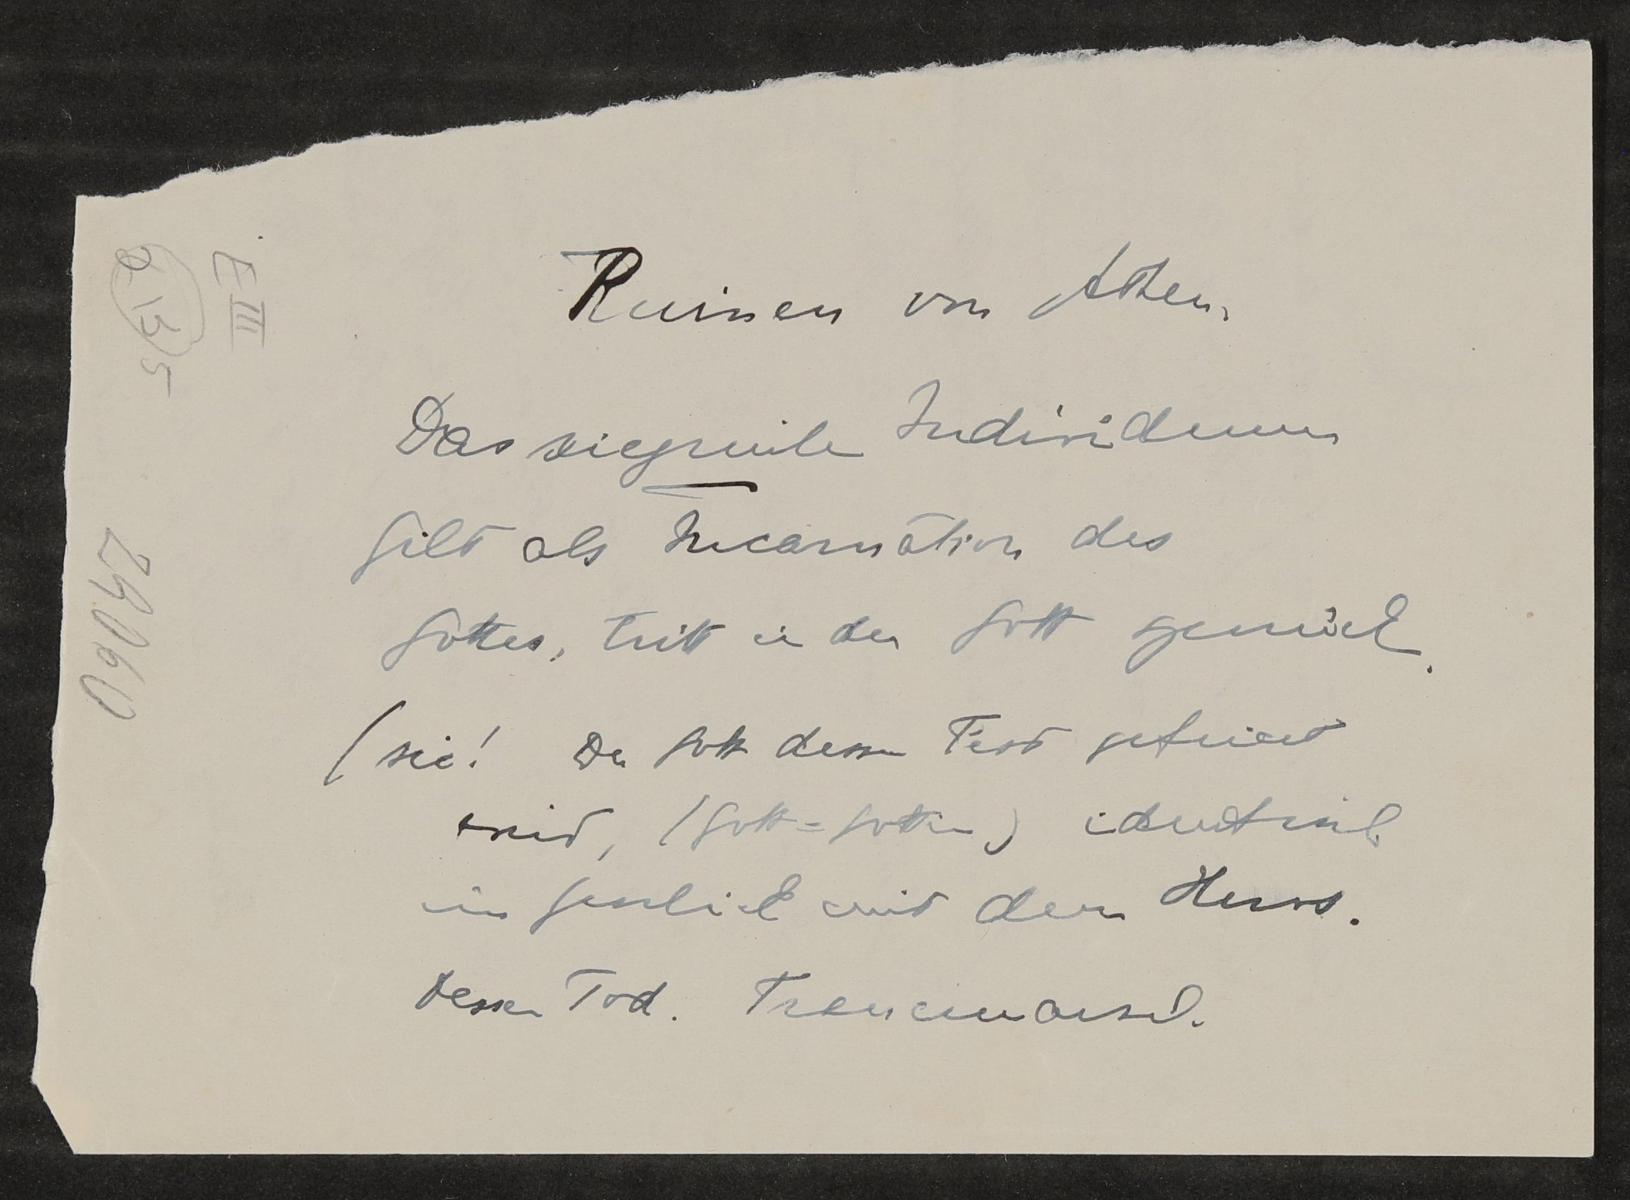 Ruinen von Athen.
Das siegreiche Individuum
gilt als Incarnation des
Gottes, tritt in den Gott zurück.
(sic! Der Gott dessen Fest gefeiert
wird, (Gott = Gottin) identisch
im Geschick mit dem Heros.
Dessen Tod. Trauermarsch.
E III
24060